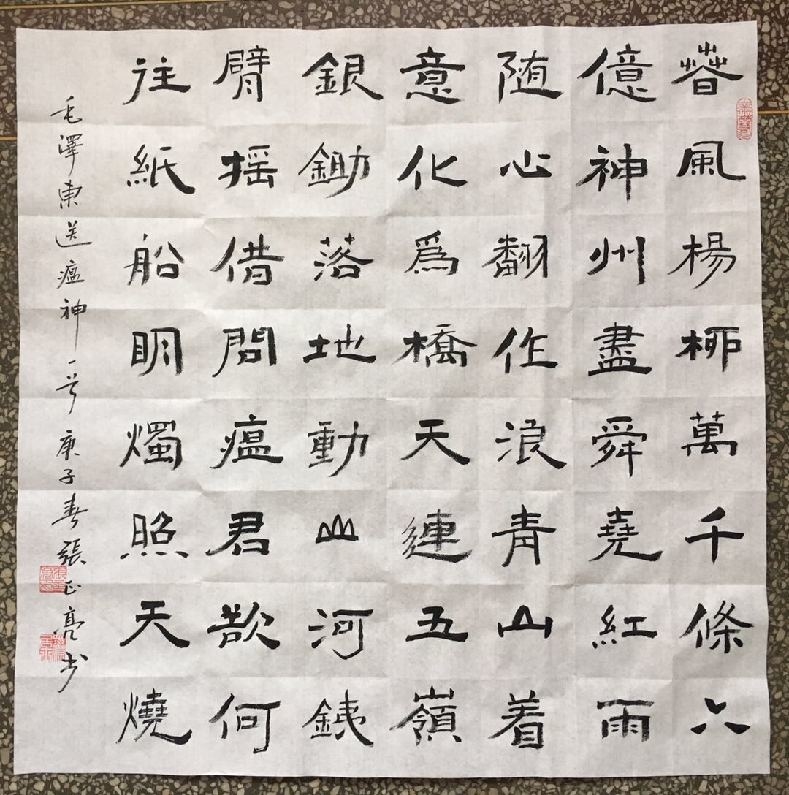 春風楊柳萬千條六
億神州盡舜堯紅雨
随心翻作浪青山着
意化爲橋天連五嶺
銀鋤落地動山河銕
臂摇借問瘟君欲何
往紙船眀燭照天燒
毛澤東送瘟神一首庚子春張正亮书